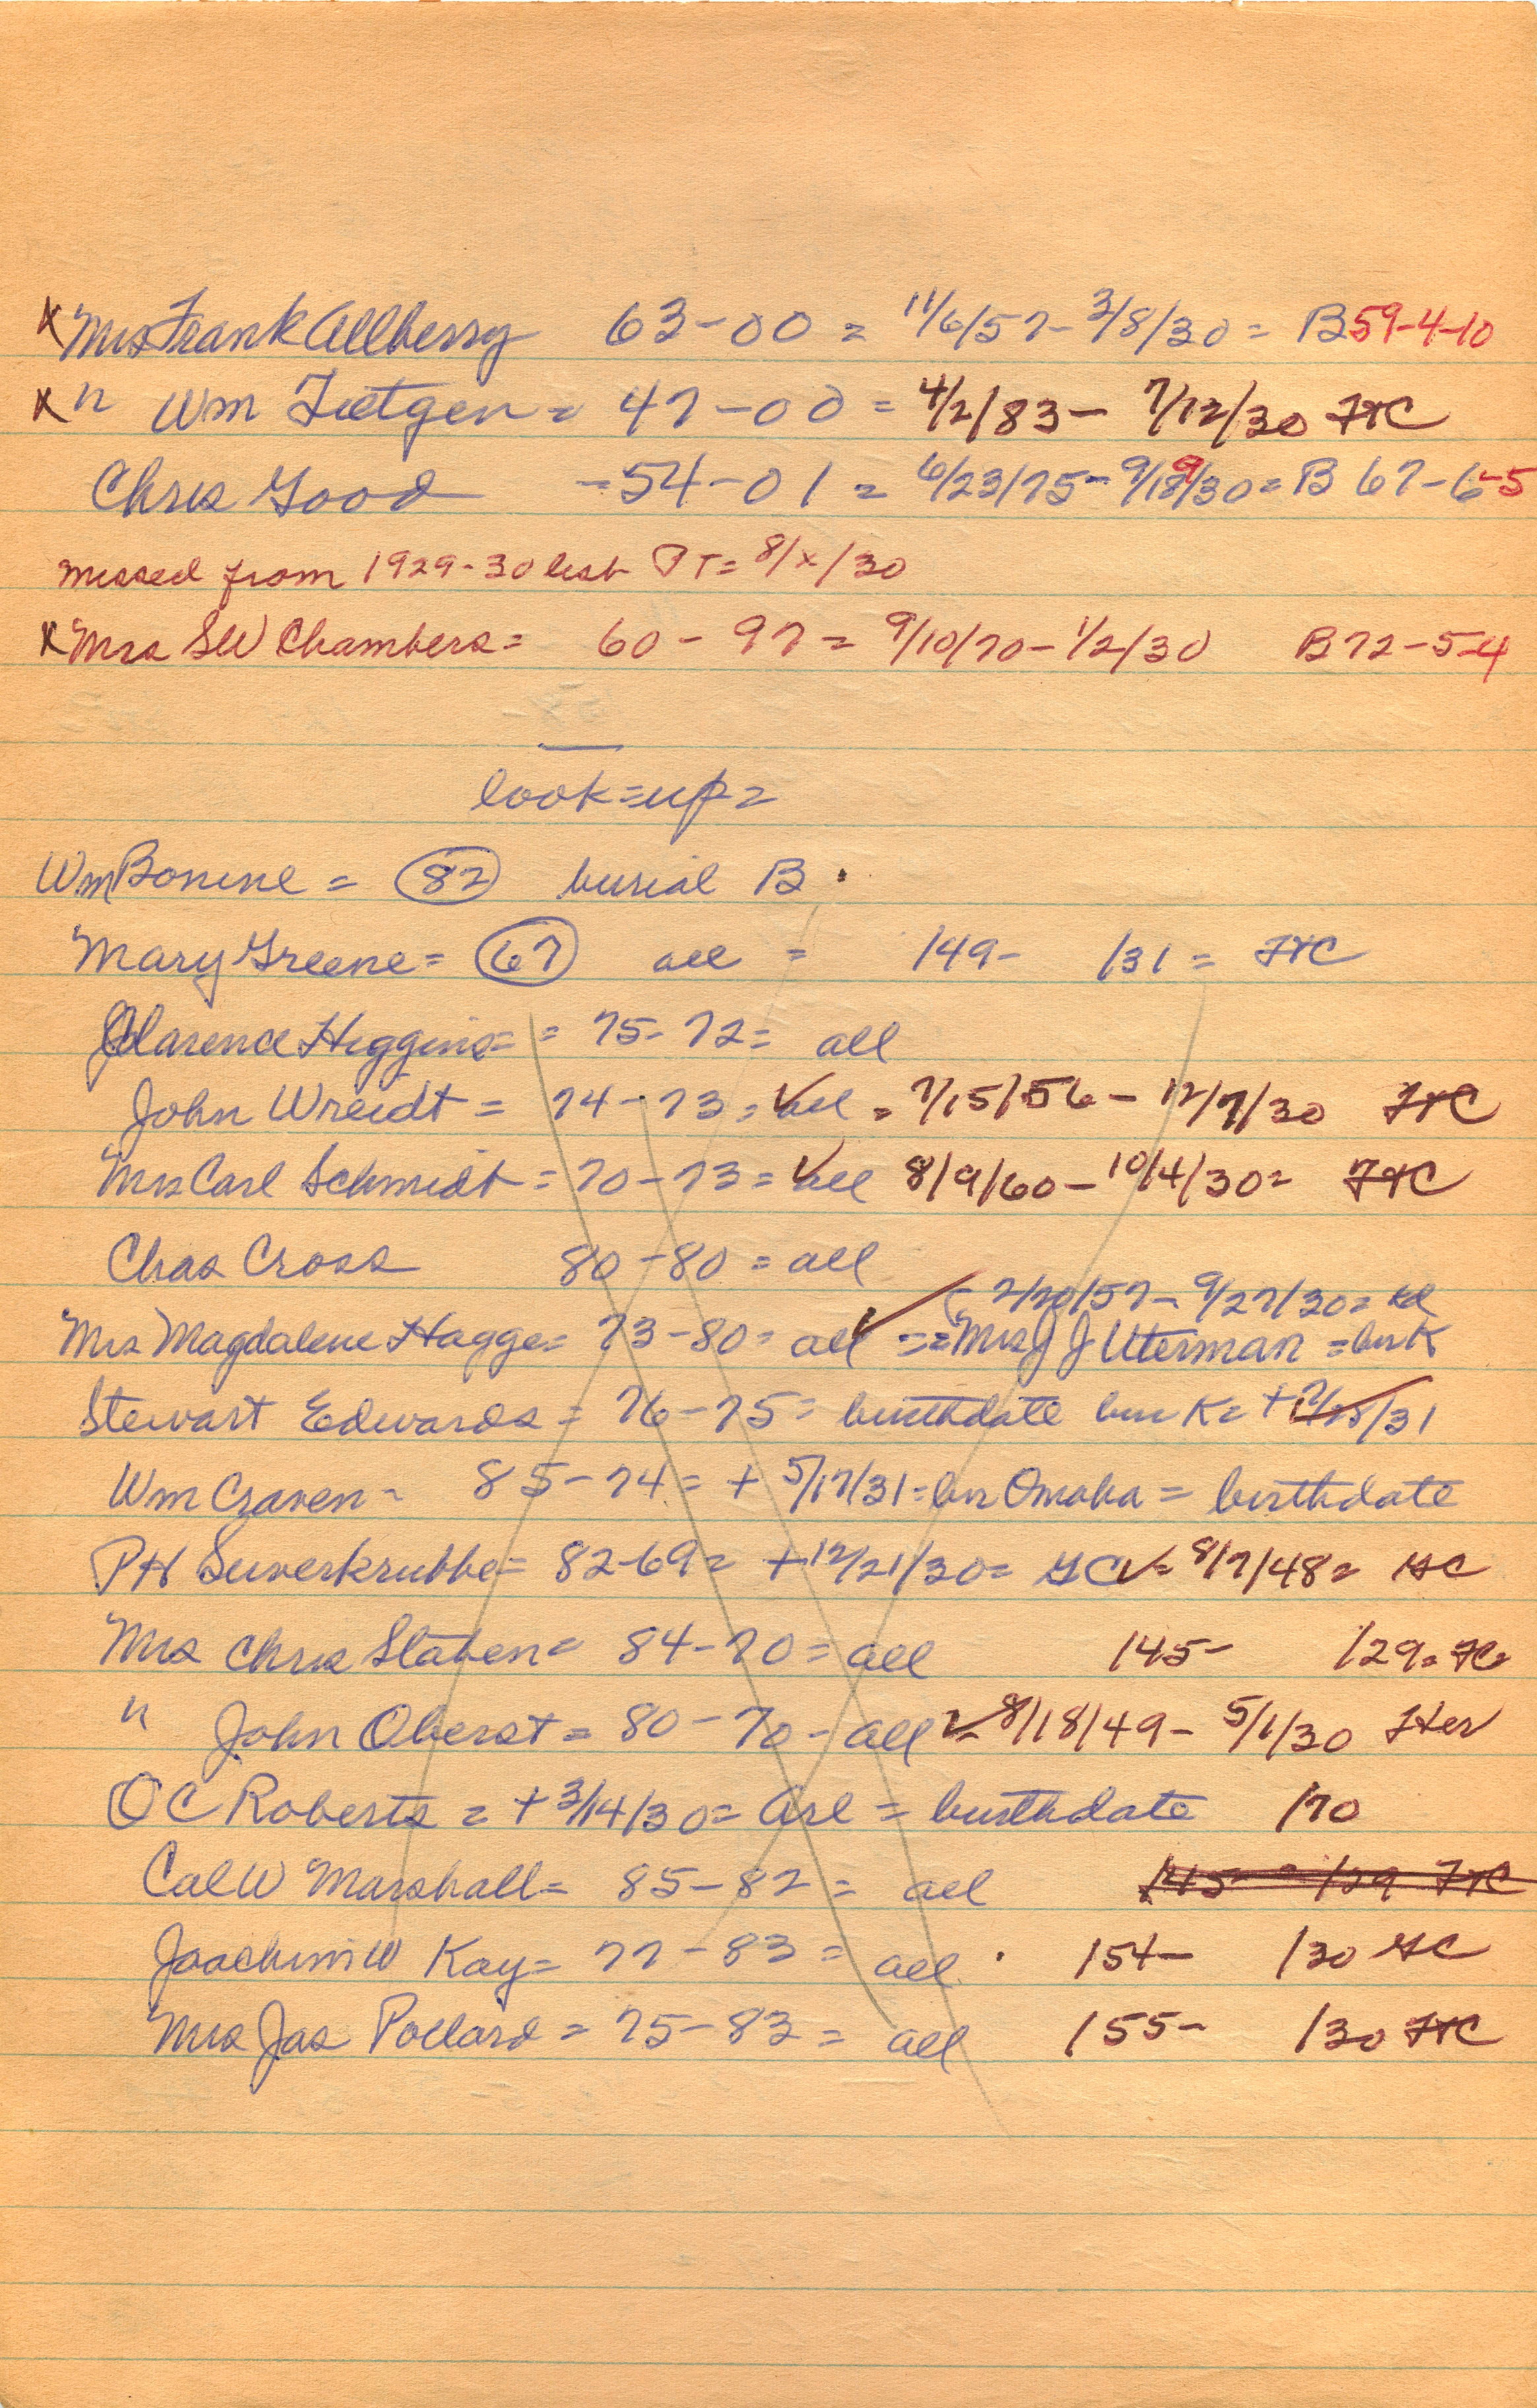 x Mrs Frank Allberry 63-00 = 11/6/57 - 3/8/30 = B59-4-10
x " Wm Tietgen = 47-00 = 4/2/83 - 7/12/30
Chris Good - 54-01 = 6/23/75 - 9/18/30 = B 67-6-5
missed from 1929-30 list PT = 8/x/30
x Mrs SW Chambers = 60-97 = 9/10/70 - 1/2/30 B72-5-4
look=up=
Wm Bonine = 82 burial B.
Mary Greene = 67 all = 149- 131 =
Clarence Higgins = = 75-72 = all
John Wreidt = 74-73 = all = 7/15/56 - 12/7/30
Mrs Carl Schmidt = 70-73 = all 8/9/60 - 10/4/30 =
Chas Cross 80-80 = all
2/20/57 - 9/27/30 =
Mrs Magdalene Hagge = 73-80 = all == Mrs J J Uterman = bur K
Stewart Edwards = 76-75 = birthdate bur K = + /31
Wm Craven - 85-74 = + 5/17/31 = bur Omaha = birthdate
PH Suverkrubbe = 82-69 = + 12/21/30 = GC ✓ = 8/7/48 = GC
Mrs Chris Staben = 84-70 = all 145- 129 =
" John Oberst = 80-70 - all ✓ 8/18/49 - 5/1/30
OC Roberts = + 3/14/30 = Arl = birthdate 170
Cal W Marshall = 85-82 = all 145 - 129
Joachim W Kay = 77-83 = all . 154- 130 GC
Mrs Jas Pollard = 75-83 = all 155- 130